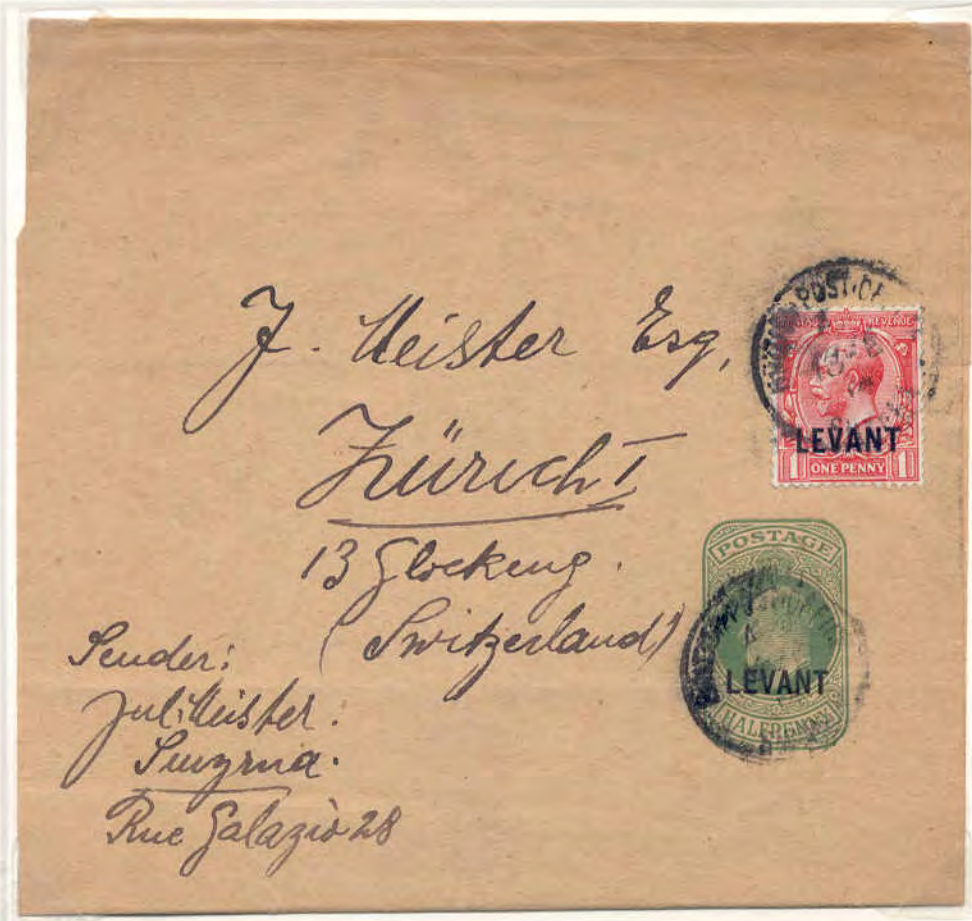 J. Meister Esq,
Zürich I
13 Glockeng.
(Switzerland)
Sender:
Jul. Meister.
Smyrna.
Rue Galazio 28
POST
REVENUE
LEVANT
1 ONE PENNY 1
POSTAGE
LEVANT
HALFPENNY